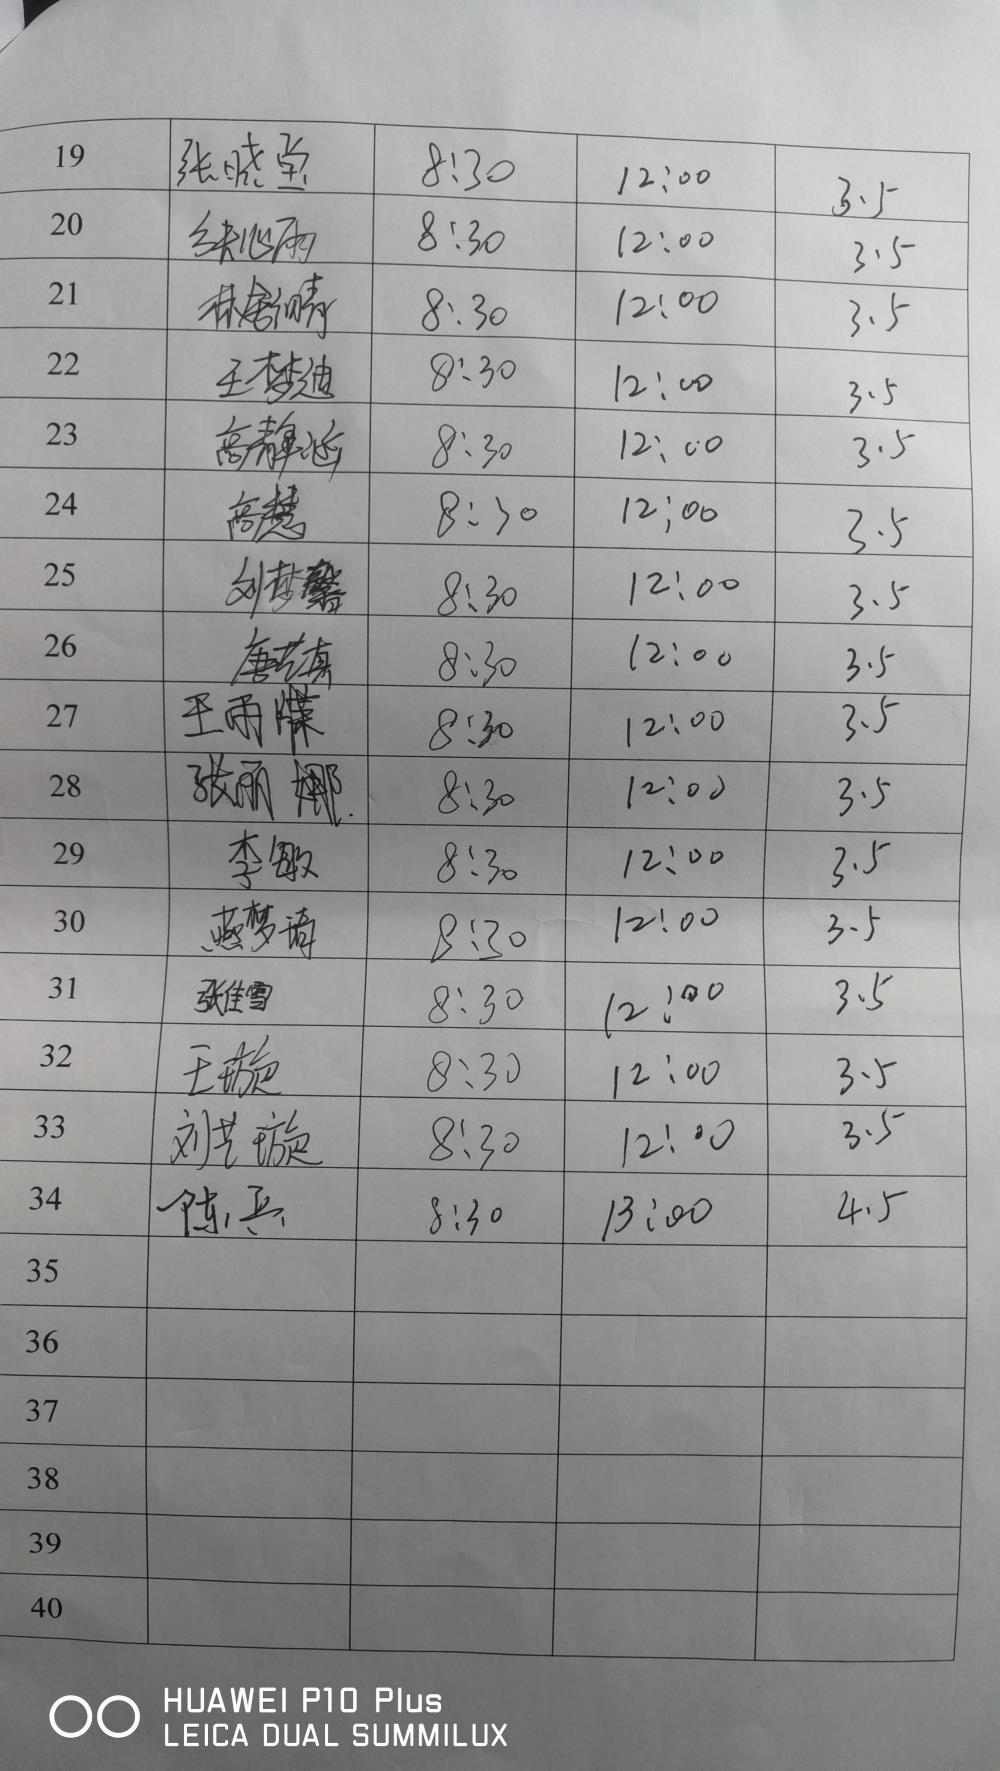 19 张晓莹 8:30 12:00 3.5
20 张心雨 8:30 12:00 3.5
21 林 晴 8:30 12:00 3.5
22 王梦迪 8:30 12:00 3.5
23 高静涵 8:30 12:00 3.5
24 高慧 8:30 12:00 3.5
25 刘梦馨 8:30 12:00 3.5
26 唐艺真 8:30 12:00 3.5
27 王雨 8:30 12:00 3.5
28 张丽娜. 8:30 12:00 3.5
29 李敏 8:30 12:00 3.5
30 燕梦琦 8:30 12:00 3.5
31 张佳雪 8:30 12:00 3.5
32 王璇 8:30 12:00 3.5
33 刘艺璇 8:30 12:00 3.5
34 陈兵 8:30 13:00 4.5
35
36
37
38
39
40
HUAWEI P10 Plus
LEICA DUAL SUMMILUX